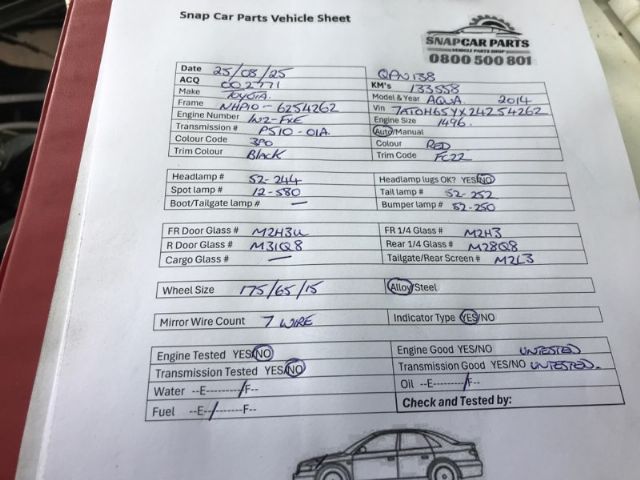 Snap Car Parts Vehicle Sheet
SNAPCAR PARTS
VEHICLE PARTS SHOP
0800 500 801
Date 25/08/25 QAN138
ACQ CO2771 KM's 133558
Make TOYOTA Model & Year AQUA 2014
Frame NHP10-6254262 Vin 7AT0H65YX24254262
Engine Number 1NZ-FXE Engine Size 1496
Transmission # P510-01A Auto/Manual
Colour Code 3P0 Colour RED
Trim Colour BLACK Trim Code FC22
Headlamp # 52-244 Headlamp lugs OK? YES/NO
Spot lamp # 12-580 Tail lamp # 52-252
Boot/Tailgate lamp # — Bumper lamp # 52-250
FR Door Glass # M2H3U FR 1/4 Glass # M2H3
R Door Glass # M31Q8 Rear 1/4 Glass # M28Q8
Cargo Glass # — Tailgate/Rear Screen # M2L3
Wheel Size 175/65/15 Alloy/Steel
Mirror Wire Count 7 WIRE Indicator Type YES/NO
Engine Tested YES/NO Engine Good YES/NO UNTESTED
Transmission Tested YES/NO Transmission Good YES/NO UNTESTED.
Water --E---------/F-- Oil --E-------/F--
Fuel --E--/-------F-- Check and Tested by: